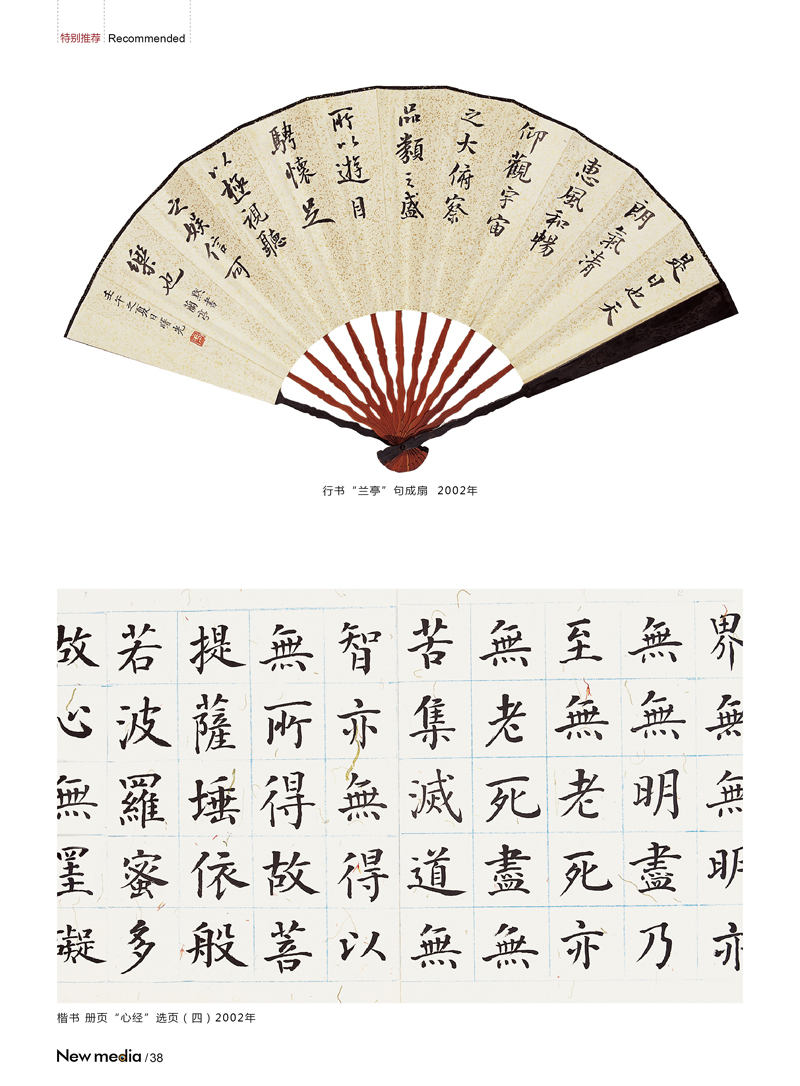 特别推荐 Recommended
是日也天
朗氣清
恵風和暢
仰觀宇宙
之大俯察
品類之盛
所以遊目
騁懷足
以極視聽
之娛信可
樂也
壬午之夏日曙光
行书“兰亭”句成扇 2002年
界無無明亦
無無明盡乃
至無老死亦
無老死盡無
苦集滅道無
智亦無得以
無所得故菩
提薩埵依般
若波羅蜜多
故心無罣礙
楷书 册页“心经”选页（四）2002年
New media /38